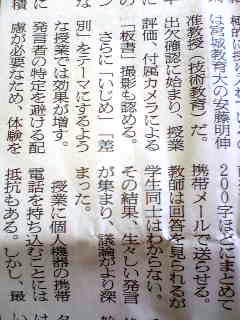 極的に
は宮城教育大の安藤明伸
准教授(技術教育)だ。
出欠確認に始まり、授業
評価、付属カメラによる
「板書」撮影も認める。
さらに「いじめ」「差
別」をテーマにするよう
な授業では効果が増す。
発言者の特定を避ける配
慮が必要なため、体験を
200字ほどにまとめて
携帯メールで送らせる。
教師は回答を見られるが
学生同士はわからない。
その結果、生々しい発言
が集まり、議論がより深
まった。
授業に個人機器の携帯
電話を持ち込むことには
抵抗もある。しかし、最